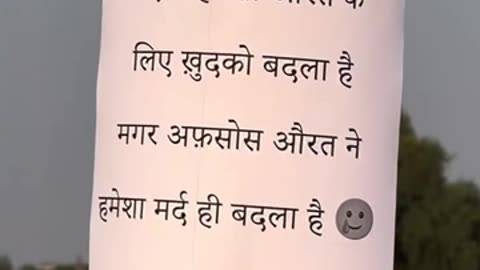 लिए ख़ुदको बदला है
मगर अफ़सोस औरत ने
हमेशा मर्द ही बदला है 🥲